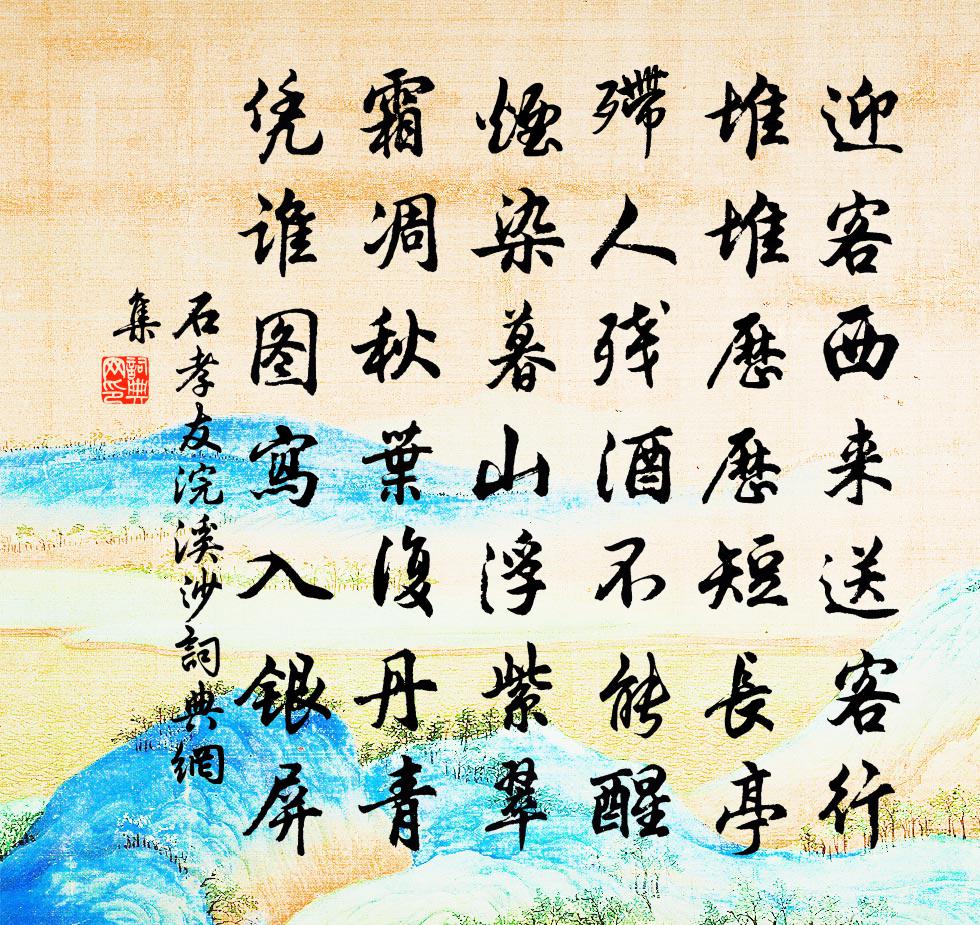 迎客西来送客行
堆堆歷歷短長亭
殢人残酒不能醒
煙染暮山浮紫翠
霜凋秋葉復丹青
凭谁图寫入銀屏
石孝友浣溪沙詞典網
集
詞典网印